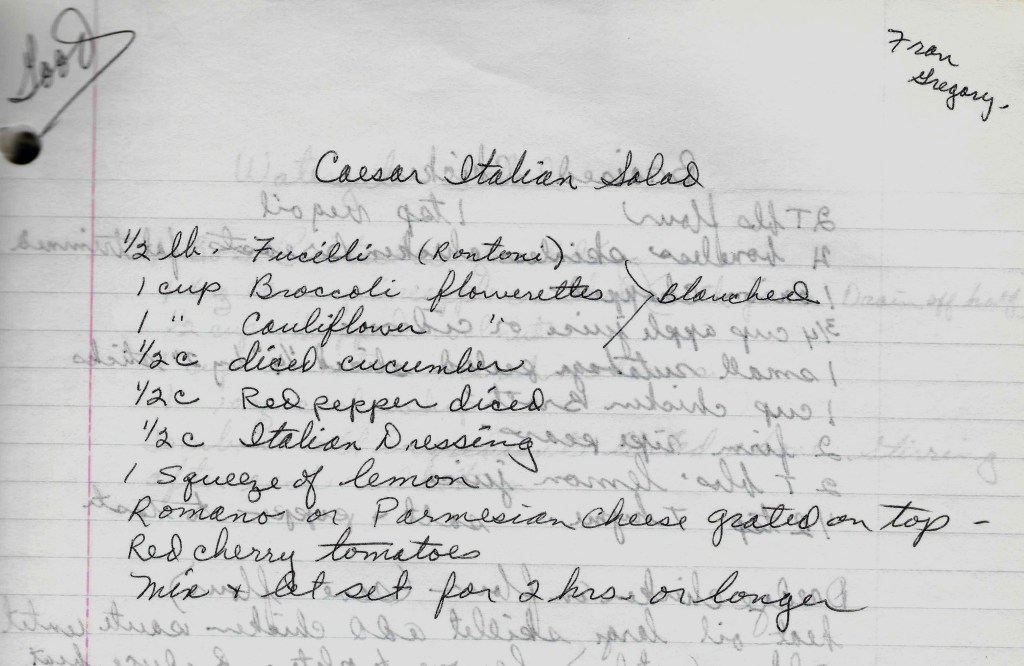 Good
Fran
Gregory.
Caesar Italian Salad
1/2 lb. Fucilli (Rontoni)
1 cup Broccoli flowerettes > Blanched
1 " Cauliflower "
1/2 c diced cucumber
1/2 c Red pepper diced
1/2 c Italian Dressing
1 Squeeze of lemon
Romano or Parmesian cheese grated on top -
Red cherry tomatoes
Mix & let set for 2 hrs. or longer